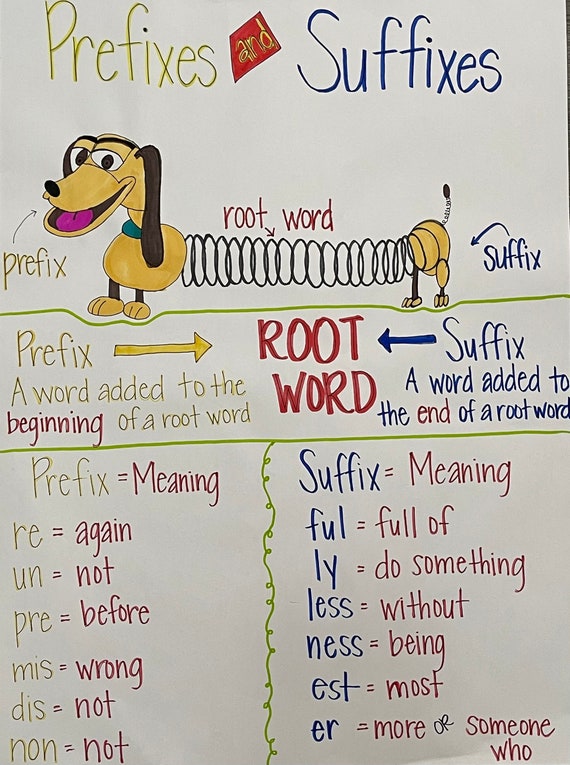 Prefixes and Suffixes
root word
prefix
suffix
Prefix
A word added to the
beginning of a root word
ROOT
WORD
Suffix
A word added to
the end of a root word
Prefix = Meaning
re = again
un = not
pre = before
mis = wrong
dis = not
non = not
Suffix = Meaning
ful = full of
ly = do something
less = without
ness = being
est = most
er = more or someone
who